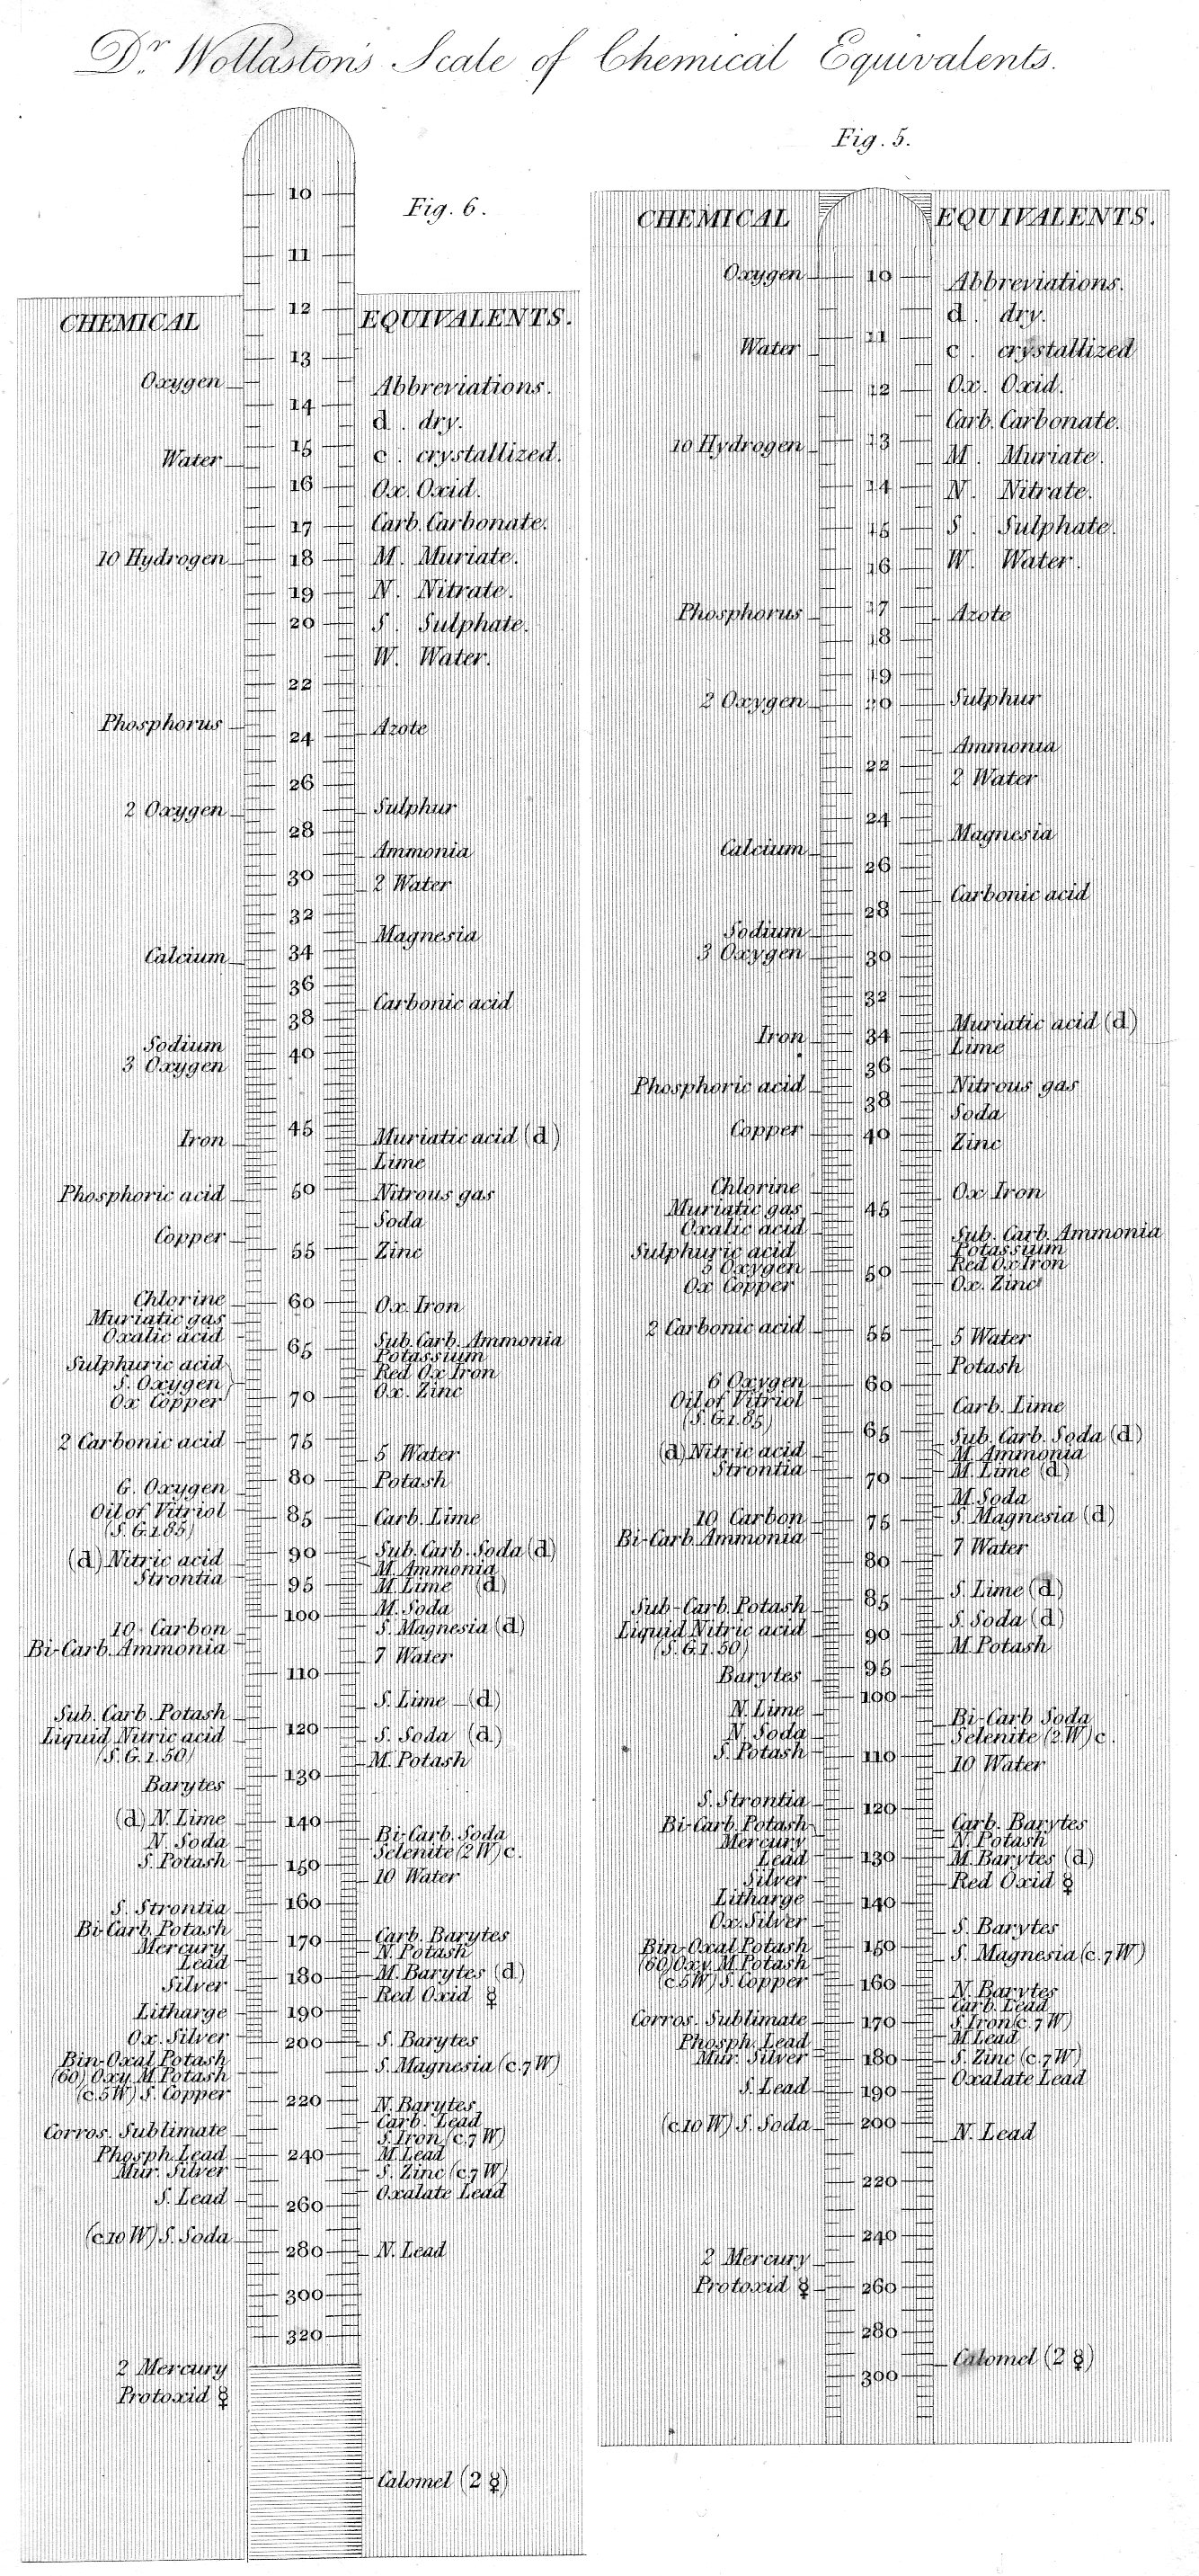 Dr. Wollaston's Scale of Chemical Equivalents.
Fig. 6.
CHEMICAL
EQUIVALENTS.
Oxygen
Water
10 Hydrogen
Phosphorus
2 Oxygen
Calcium
Sodium
3 Oxygen
Iron
Phosphoric acid
Copper
Chlorine
Muriatic gas
Oxalic acid
Sulphuric acid
5. Oxygen
Ox Copper
2 Carbonic acid
6. Oxygen
Oil of Vitriol
(S.G.1.85)
(d) Nitric acid
Strontia
10 Carbon
Bi-Carb. Ammonia
Sub. Carb. Potash
Liquid Nitric acid
(S.G.1.50)
Barytes
(d) N. Lime
N. Soda
S. Potash
S. Strontia
Bi-Carb. Potash
Mercury
Lead
Silver
Litharge
Ox. Silver
Bin-Oxal Potash
(60) Oxy. M. Potash
(c.5W) S. Copper
Corros. Sublimate
Phosph. Lead
Mur. Silver
S. Lead
(c.10 W) S. Soda
2 Mercury
Protoxid ☿
10
11
12
13
14
15
16
17
18
19
20
22
24
26
28
30
32
34
36
38
40
45
50
55
60
65
70
75
80
85
90
95
100
110
120
130
140
150
160
170
180
190
200
220
240
260
280
300
320
Abbreviations.
d . dry.
c . crystallized.
Ox. Oxid.
Carb. Carbonate.
M. Muriate.
N. Nitrate.
S. Sulphate.
W. Water.
Azote
Sulphur
Ammonia
2 Water
Magnesia
Carbonic acid
Muriatic acid (d)
Lime
Nitrous gas
Soda
Zinc
Ox. Iron
Sub. Carb. Ammonia
Potassium
Red Ox Iron
Ox. Zinc
5 Water
Potash
Carb. Lime
Sub. Carb. Soda (d)
M. Ammonia
M. Lime (d)
M. Soda
S. Magnesia (d)
7 Water
S. Lime (d)
S. Soda (d)
M. Potash
Bi-Carb. Soda
Selenite (2 W) c.
10 Water
Carb. Barytes
N. Potash
M. Barytes (d)
Red Oxid ☿
S. Barytes
S. Magnesia (c.7 W)
N. Barytes
Carb. Lead
S. Iron (c.7 W)
M. Lead
S. Zinc (c.7 W)
Oxalate Lead
N. Lead
Calomel (2 ☿)
Fig. 5.
CHEMICAL
EQUIVALENTS.
Oxygen
Water
10 Hydrogen
Phosphorus
2 Oxygen
Calcium
Sodium
3 Oxygen
Iron
Phosphoric acid
Copper
Chlorine
Muriatic gas
Oxalic acid
Sulphuric acid
5 Oxygen
Ox Copper
2 Carbonic acid
6 Oxygen
Oil of Vitriol
(S.G.1.85)
(d) Nitric acid
Strontia
10 Carbon
Bi-Carb. Ammonia
Sub-Carb. Potash
Liquid Nitric acid
(S.G.1.50)
Barytes
N. Lime
N. Soda
S. Potash
S. Strontia
Bi-Carb. Potash
Mercury
Lead
Silver
Litharge
Ox. Silver
Bin-Oxal Potash
(60) Oxy. M. Potash
(c.5W) S. Copper
Corros. Sublimate
Phosph. Lead
Mur. Silver
S. Lead
(c.10 W) S. Soda
2 Mercury
Protoxid ☿
10
11
12
13
14
15
16
17
18
19
20
22
24
26
28
30
32
34
36
38
40
45
50
55
60
65
70
75
80
85
90
95
100
110
120
130
140
150
160
170
180
190
200
220
240
260
280
300
Abbreviations.
d . dry.
c . crystallized
Ox. Oxid.
Carb. Carbonate.
M. Muriate.
N. Nitrate.
S. Sulphate.
W. Water.
Azote
Sulphur
Ammonia
2 Water
Magnesia
Carbonic acid
Muriatic acid (d)
Lime
Nitrous gas
Soda
Zinc
Ox Iron
Sub. Carb. Ammonia
Potassium
Red Ox Iron
Ox. Zinc
5 Water
Potash
Carb. Lime
Sub. Carb. Soda (d)
M. Ammonia
M. Lime (d)
M. Soda
S. Magnesia (d)
7 Water
S. Lime (d)
S. Soda (d)
M. Potash
Bi-Carb Soda
Selenite (2.W) c.
10 Water
Carb. Barytes
N. Potash
M. Barytes (d)
Red Oxid ☿
S. Barytes
S. Magnesia (c.7 W)
N. Barytes
Carb. Lead
S. Iron (c.7 W)
M. Lead
S. Zinc (c.7 W)
Oxalate Lead
N. Lead
Calomel (2 ☿)